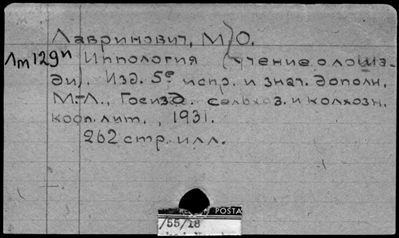 Лавринович, М) О.
Лт 129п Иппология (учение о лошади). Изд. 5е испр. и знач. дополн.
М.-Л., Госизд. сельхоз. и колхозн.
кооп. лит., 1931.
262 стр. илл.
POSTA
/55/18